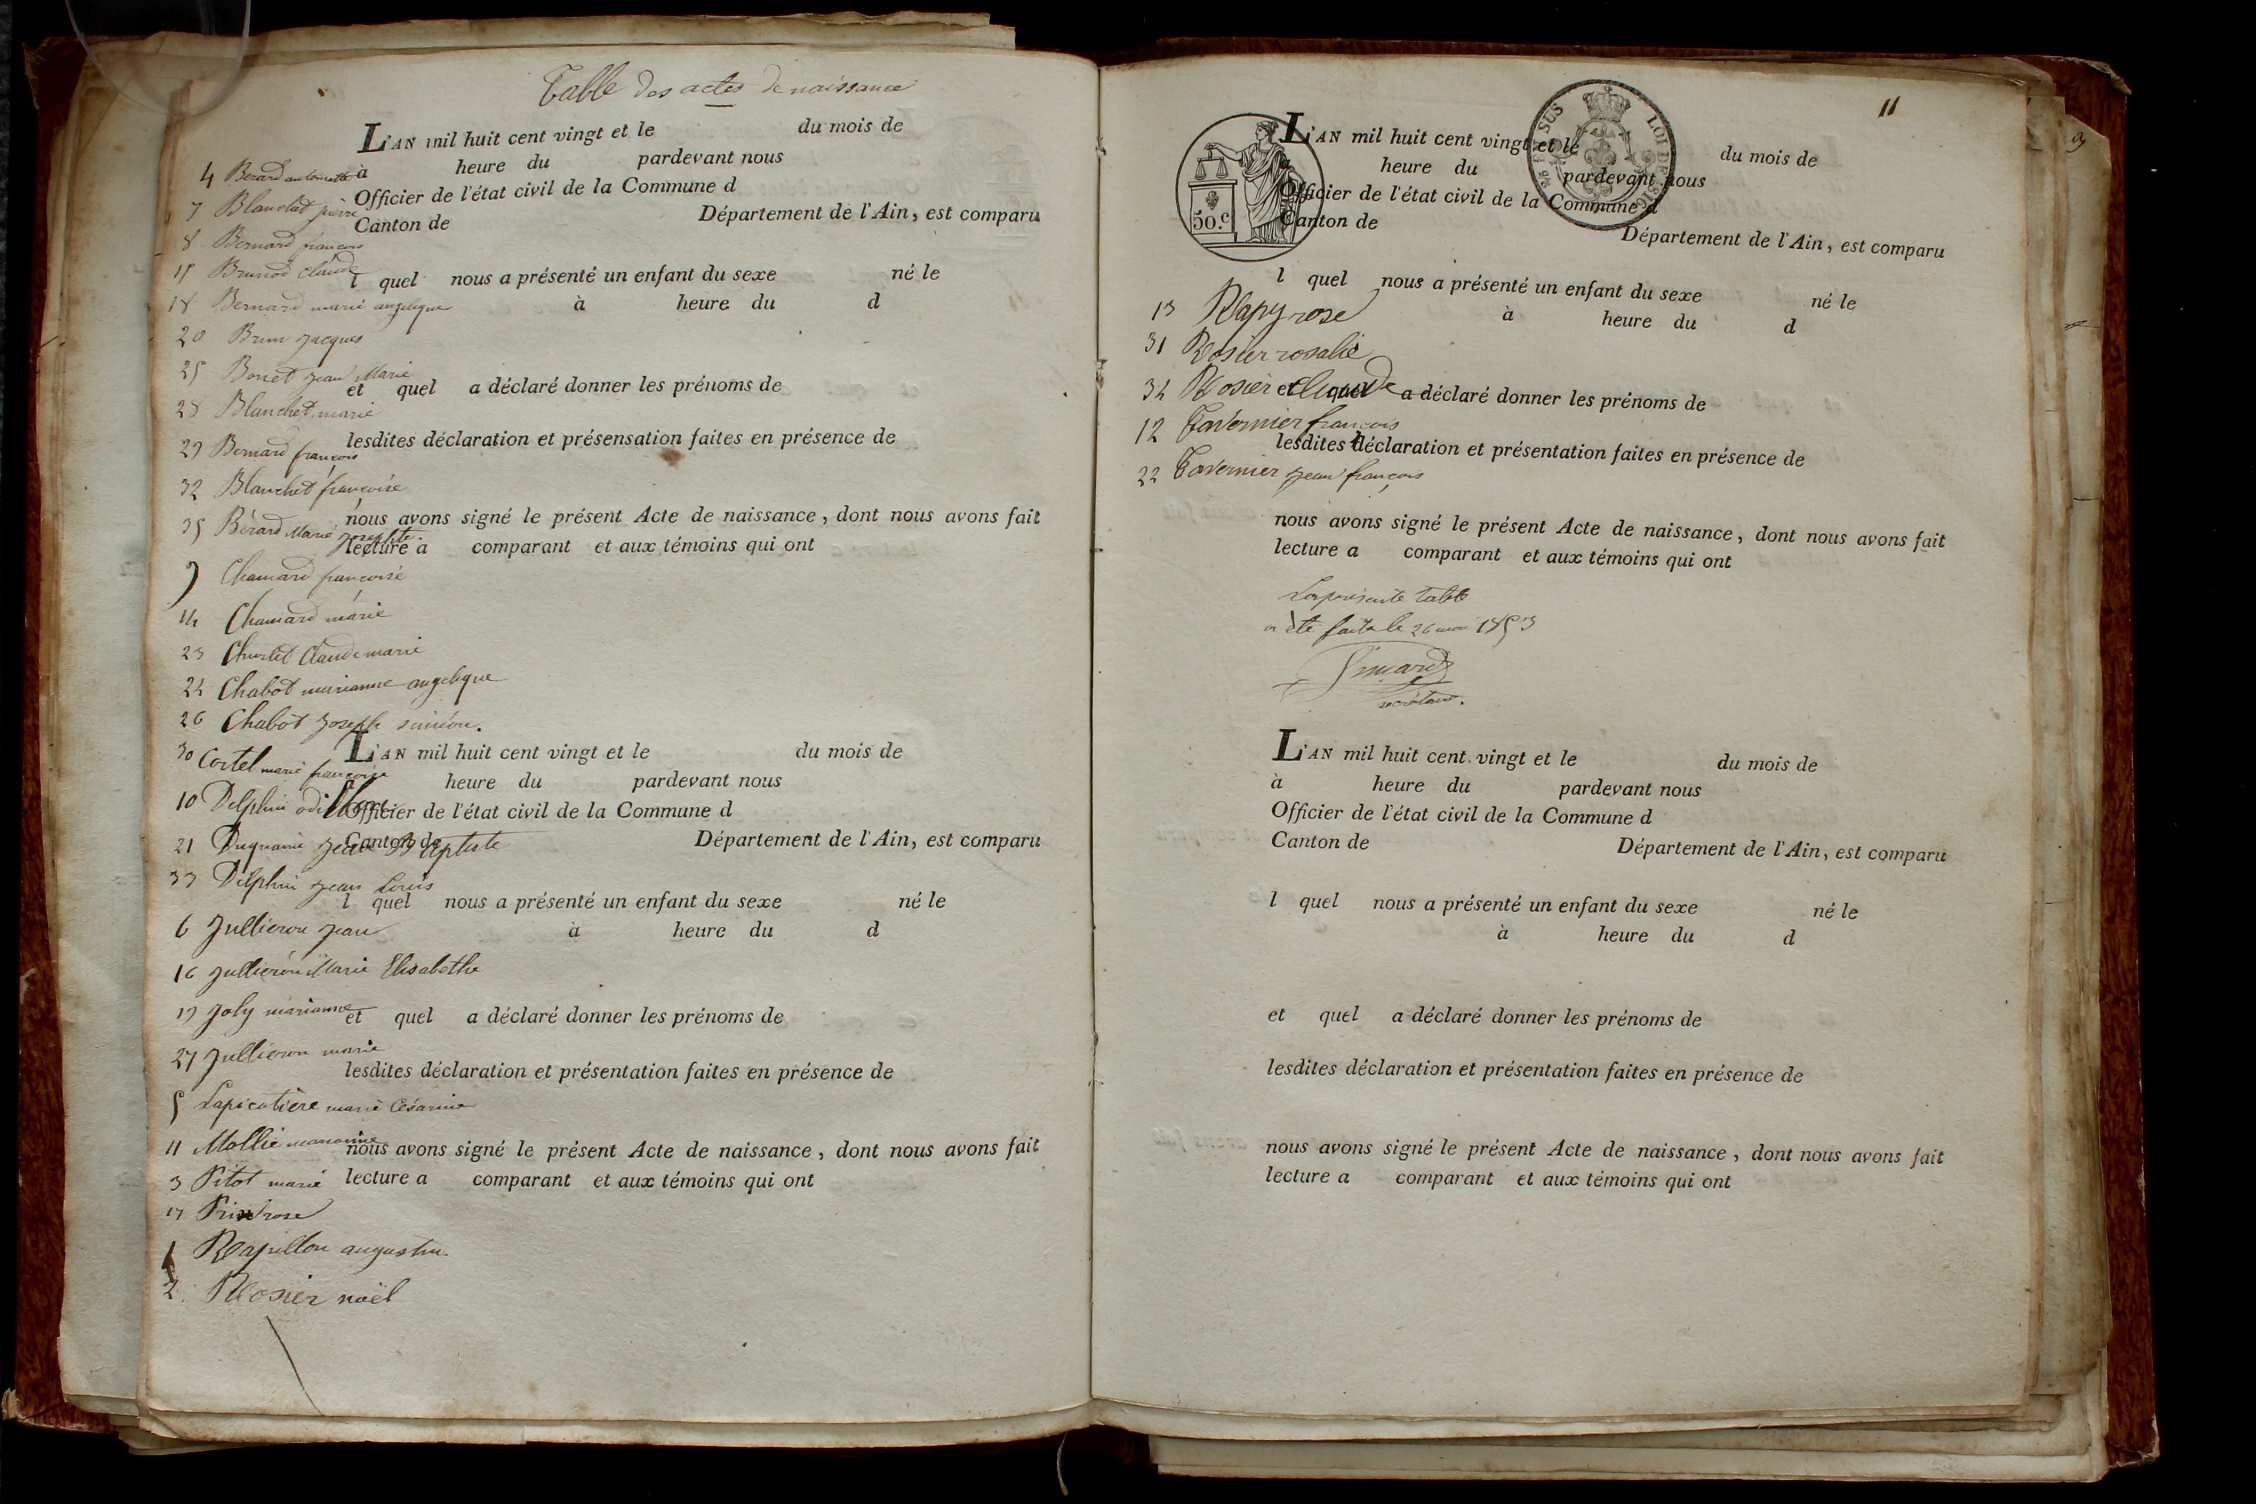 Table des actes de naissance
L'AN mil huit cent vingt et le du mois de
à heure du pardevant nous
Officier de l'état civil de la Commune d
Canton de Département de l'Ain, est comparu
l quel nous a présenté un enfant du sexe né le
à heure du d
et quel a déclaré donner les prénoms de
lesdites déclaration et présensation faites en présence de
nous avons signé le présent Acte de naissance, dont nous avons fait
lecture a comparant et aux témoins qui ont
4 Berard antoinette
7 Blanchet pierre
8 Bernard francois
15 Brunod Claude
18 Bernard marie angelique
20 Brun Jacques
25 Bonet Jean Marie
28 Blanchet marie
29 Bernard françois
32 Blanchet françoise
35 Bérard Marie Josephte
9 Chamard françoise
14 Chamard marie
23 Claude marie
24 Chabot marianne angelique
26 Chabot Joseph siméon.
30 Cortel marie françoise
10 Delphin
21 Jean Baptiste
33 Delphin Jean Louis
6 Jullieron Jean
16 Jullieron Marie Elisabethe
19 Joly marianne
27 Jullieron marie
5 Lapicotiere marie Césarine
11 Mollie marianne
3 Pitot marie
17 rose
1 Rapillon augustin
2 Rosier noël
L'AN mil huit cent vingt et le du mois de
à heure du pardevant nous
Officier de l'état civil de la Commune d
Canton de Département de l'Ain, est comparu
l quel nous a présenté un enfant du sexe né le
à heure du d
et quel a déclaré donner les prénoms de
lesdites déclaration et présentation faites en présence de
nous avons signé le présent Acte de naissance, dont nous avons fait
lecture a comparant et aux témoins qui ont
11
50.c
EN SUS LOI DE 1816
L'AN mil huit cent vingt et le du mois de
à heure du pardevant nous
Officier de l'état civil de la Commune d
Canton de Département de l'Ain, est comparu
l quel nous a présenté un enfant du sexe né le
à heure du d
13 Rapy rose
31 Rosier rosalie
34 Rosier Claude
et quel a déclaré donner les prénoms de
12 Tavernier francois
lesdites déclaration et présentation faites en présence de
22 Tavernier Jean françois
nous avons signé le présent Acte de naissance, dont nous avons fait
lecture a comparant et aux témoins qui ont
La présente table
a été faite le 26 mai 1853
secrétaire.
L'AN mil huit cent vingt et le du mois de
à heure du pardevant nous
Officier de l'état civil de la Commune d
Canton de Département de l'Ain, est comparu
l quel nous a présenté un enfant du sexe né le
à heure du d
et quel a déclaré donner les prénoms de
lesdites déclaration et présentation faites en présence de
nous avons signé le présent Acte de naissance, dont nous avons fait
lecture a comparant et aux témoins qui ont